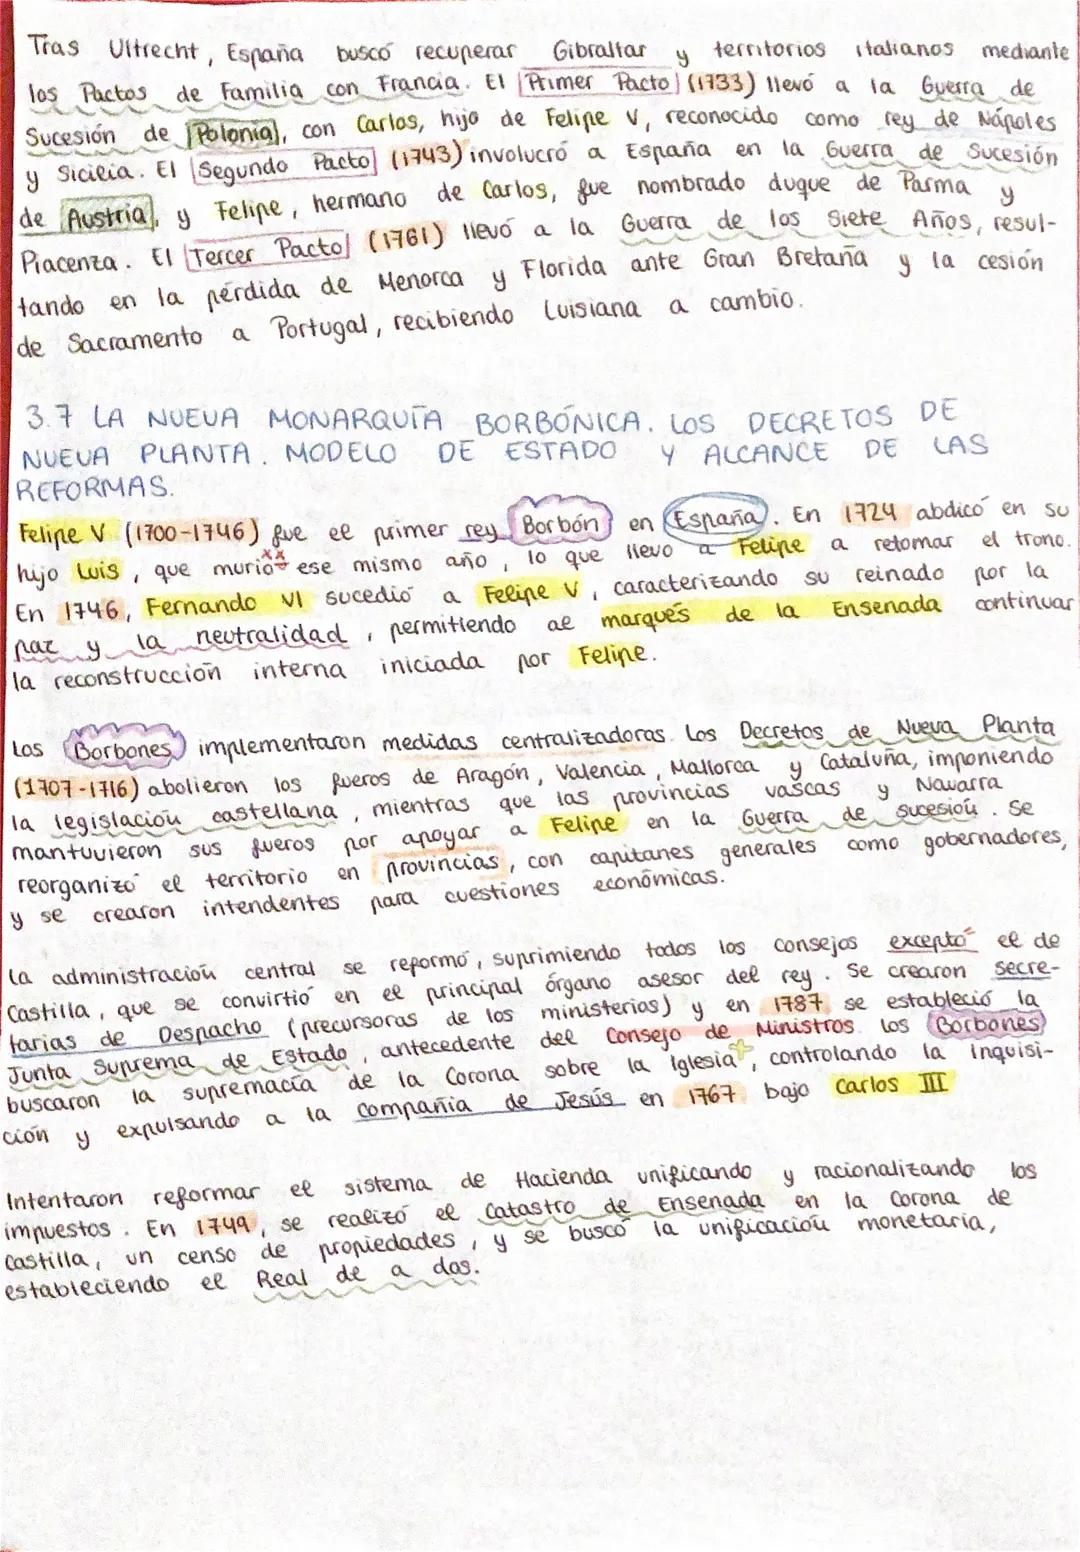 Tras Ultrecht, España buscó recuperar Gibraltar y territorios italianos mediante
los Pactos de Familia con Francia. El Primer Pacto (1733) llevó a la Guerra de
Sucesión de Polonia, con Carlos, hijo de Felipe V, reconocido como rey de Nápoles
y Sicilia. El Segundo Pacto (1743) involucró a España en la Guerra de Sucesión
de Austria, y Felipe, hermano de Carlos, fue nombrado duque de Parma y
Piacenza. El Tercer Pacto (1761) llevó a la Guerra de los Siete Años, resul-
tando en la pérdida de Menorca y Florida ante Gran Bretaña y la cesión
de Sacramento a Portugal, recibiendo Luisiana a cambio.
3.7 LA NUEVA MONARQUÍA BORBÓNICA. LOS DECRETOS DE
NUEVA PLANTA. MODELO DE ESTADO Y ALCANCE DE LAS
REFORMAS.
Felipe V (1700-1746) fue el primer rey Borbón en España. En 1724 abdicó en su
hijo Luis, que murió ese mismo año, lo que llevo a Felipe a retomar el trono.
En 1746, Fernando VI sucedió a Felipe V, caracterizando su reinado por la
paz y la neutralidad, permitiendo al marqués de la Ensenada continuar
la reconstrucción interna iniciada por Felipe.
Los Borbones implementaron medidas centralizadoras. Los Decretos de Nueva Planta
(1707-1716) abolieron los fueros de Aragón, Valencia, Mallorca y Cataluña, imponiendo
la legislación castellana, mientras que las provincias vascas y Navarra
mantuvieron sus fueros por apoyar a Felipe en la Guerra de sucesión. Se
reorganizó el territorio en provincias, con capitanes generales como gobernadores,
y se crearon intendentes para cuestiones económicas.
La administración central se reformó, suprimiendo todos los consejos excepto el de
Castilla, que se convirtió en el principal órgano asesor del rey. Se crearon secre-
tarias de Despacho (precursoras de los ministerios) y en 1787 se estableció la
Junta Suprema de Estado, antecedente del Consejo de Ministros. Los Borbones
buscaron la supremacía de la Corona sobre la Iglesia, controlando la Inquisi-
ción y expulsando a la Compañia de Jesús en 1767 bajo Carlos III
Intentaron reformar el sistema de Hacienda unificando y racionalizando los
impuestos. En 1749, se realizó el Catastro de Ensenada en la Corona de
Castilla, un censo de propiedades, y se buscó la unificación monetaria,
estableciendo el Real de a dos.